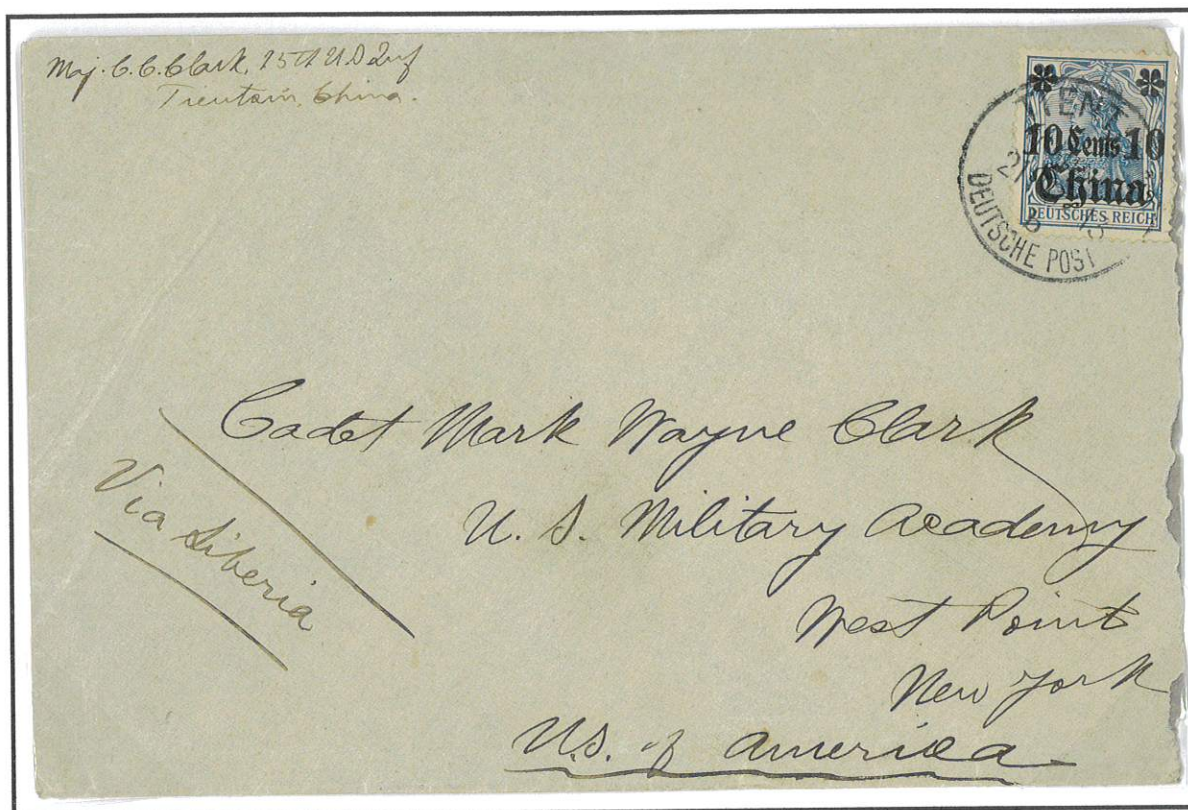 Maj. C. C. Clark, 15th U.S. Inf
Tientsin, China.
10 Cents 10
China
DEUTSCHES REICH
TIENT
DEUTSCHE POST
Cadet Mark Wayne Clark
U. S. Military Academy
West Point
New York
U.S. of America
Via Siberia